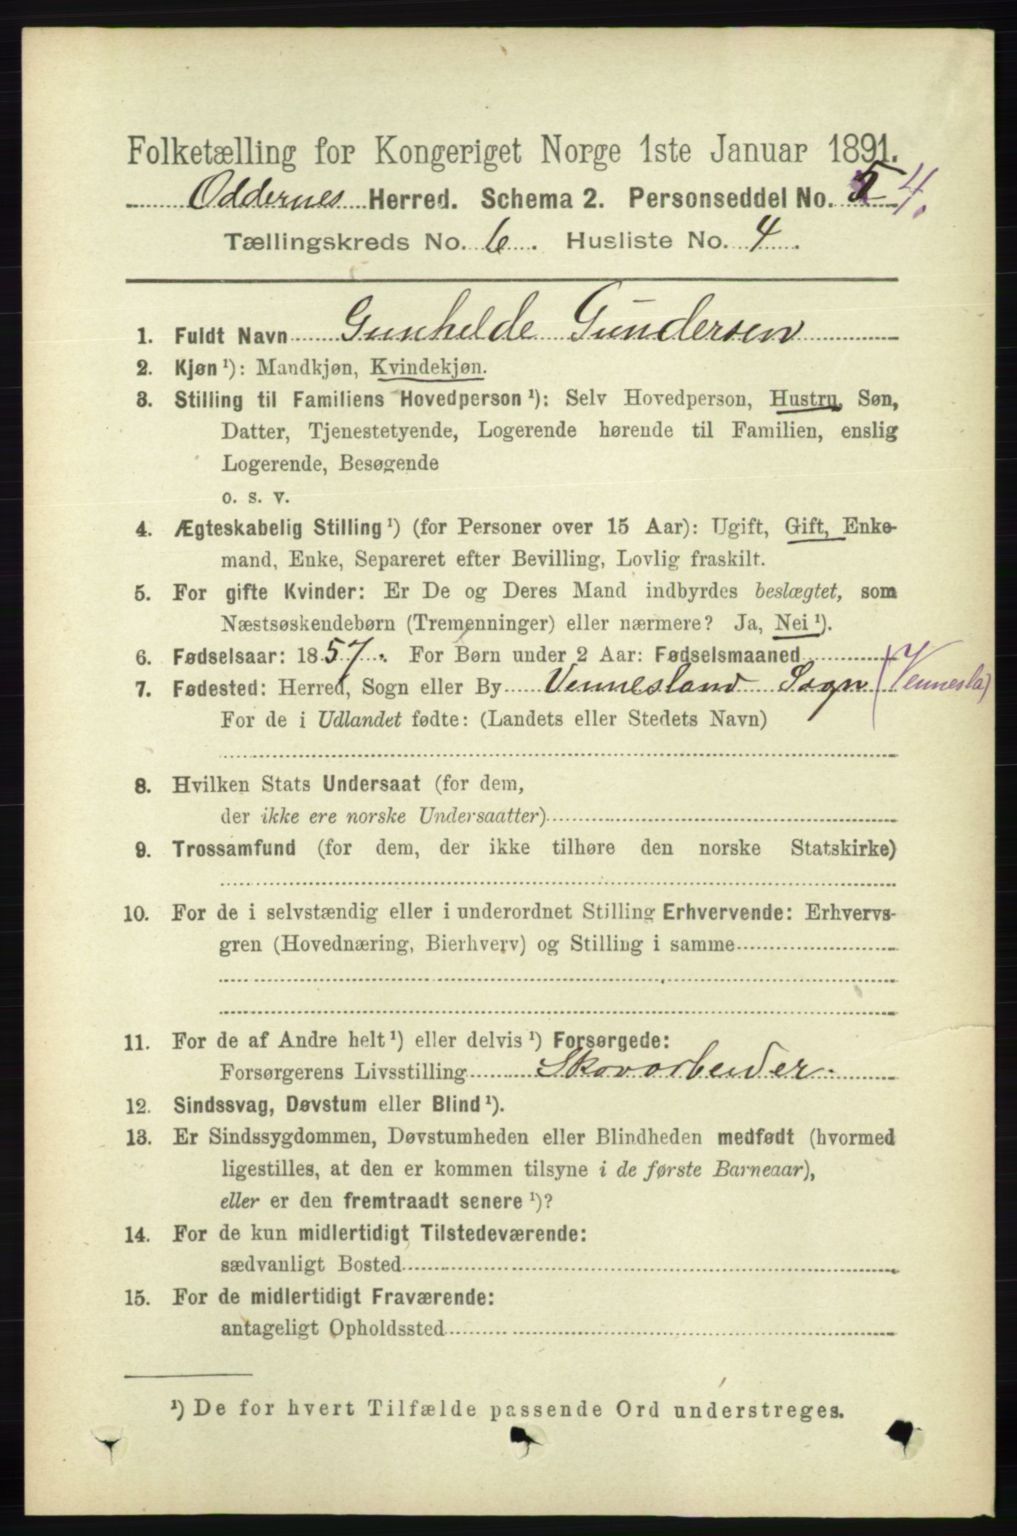 Folketælling for Kongeriget Norge 1ste Januar 1891.
Oddernes Herred. Schema 2. Personseddel No. 5 4.
Tællingskreds No. 6. Husliste No. 4.
1. Fuldt Navn Gunhelde Gundersen
2. Kjøn ¹): Mandkjøn, Kvindekjøn.
3. Stilling til Familiens Hovedperson ¹): Selv Hovedperson, Hustru, Søn,
Datter, Tjenestetyende, Logerende hørende til Familien, enslig
Logerende, Besøgende
o. s. v.
4. Ægteskabelig Stilling ¹) (for Personer over 15 Aar): Ugift, Gift, Enke-
mand, Enke, Separeret efter Bevilling, Lovlig fraskilt.
5. For gifte Kvinder: Er De og Deres Mand indbyrdes beslægtet, som
Næstsøskendebørn (Tremenninger) eller nærmere? Ja, Nei ¹).
6. Fødselsaar: 1857. For Børn under 2 Aar: Fødselsmaaned
7. Fødested: Herred, Sogn eller By Vennesland Sogn (Vennesla)
For de i Udlandet fødte: (Landets eller Stedets Navn)
8. Hvilken Stats Undersaat (for dem,
der ikke ere norske Undersaatter)
9. Trossamfund (for dem, der ikke tilhøre den norske Statskirke)
10. For de i selvstændig eller i underordnet Stilling Erhvervende: Erhvervs-
gren (Hovednæring, Bierhverv) og Stilling i samme
11. For de af Andre helt ¹) eller delvis ¹) Forsørgede:
Forsørgerens Livsstilling Skovarbeider.
12. Sindssvag, Døvstum eller Blind ¹).
13. Er Sindssygdommen, Døvstumheden eller Blindheden medfødt (hvormed
ligestilles, at den er kommen tilsyne i de første Barneaar),
eller er den fremtraadt senere ¹)?
14. For de kun midlertidigt Tilstedeværende:
sædvanligt Bosted
15. For de midlertidigt Fraværende:
antageligt Opholdssted
¹) De for hvert Tilfælde passende Ord understreges.